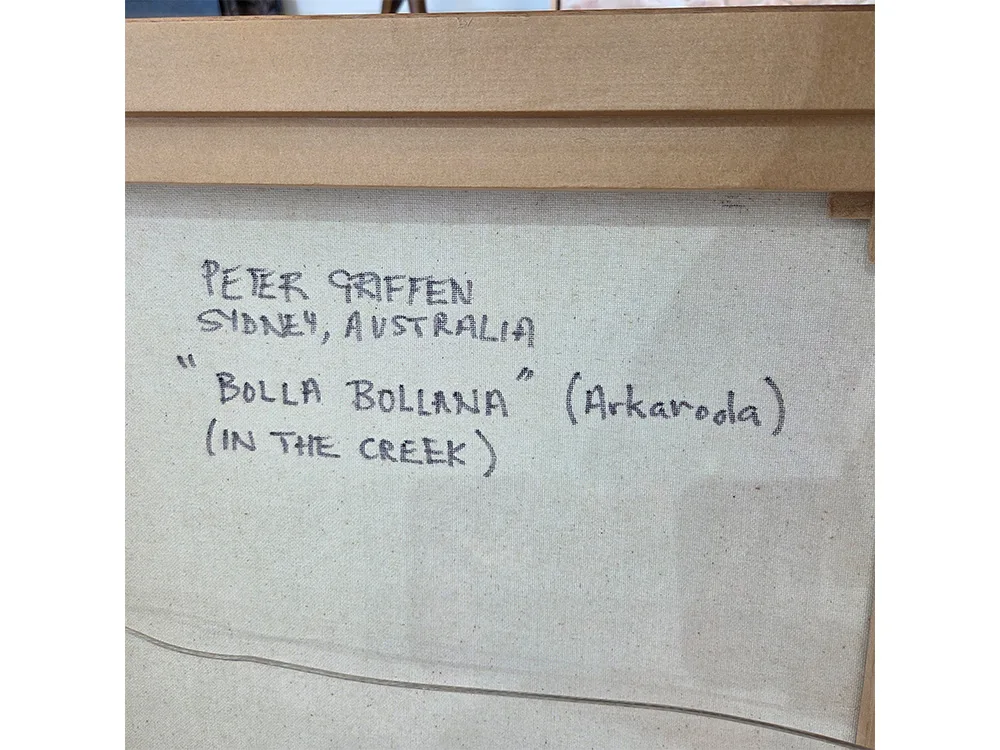 PETER GRIFFEN
SYDNEY, AUSTRALIA
"BOLLA BOLLANA" (Arkaroola)
(IN THE CREEK)